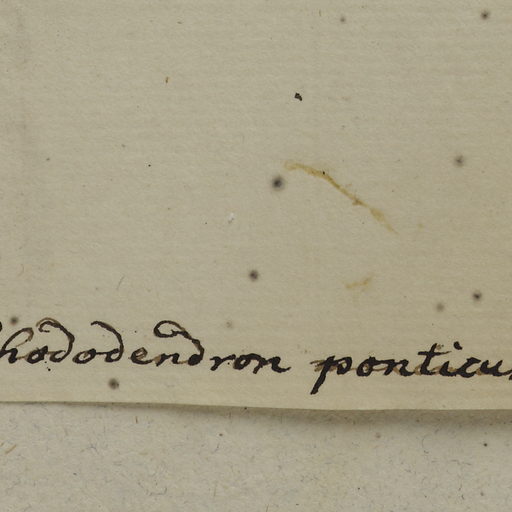 hododendron ponticu